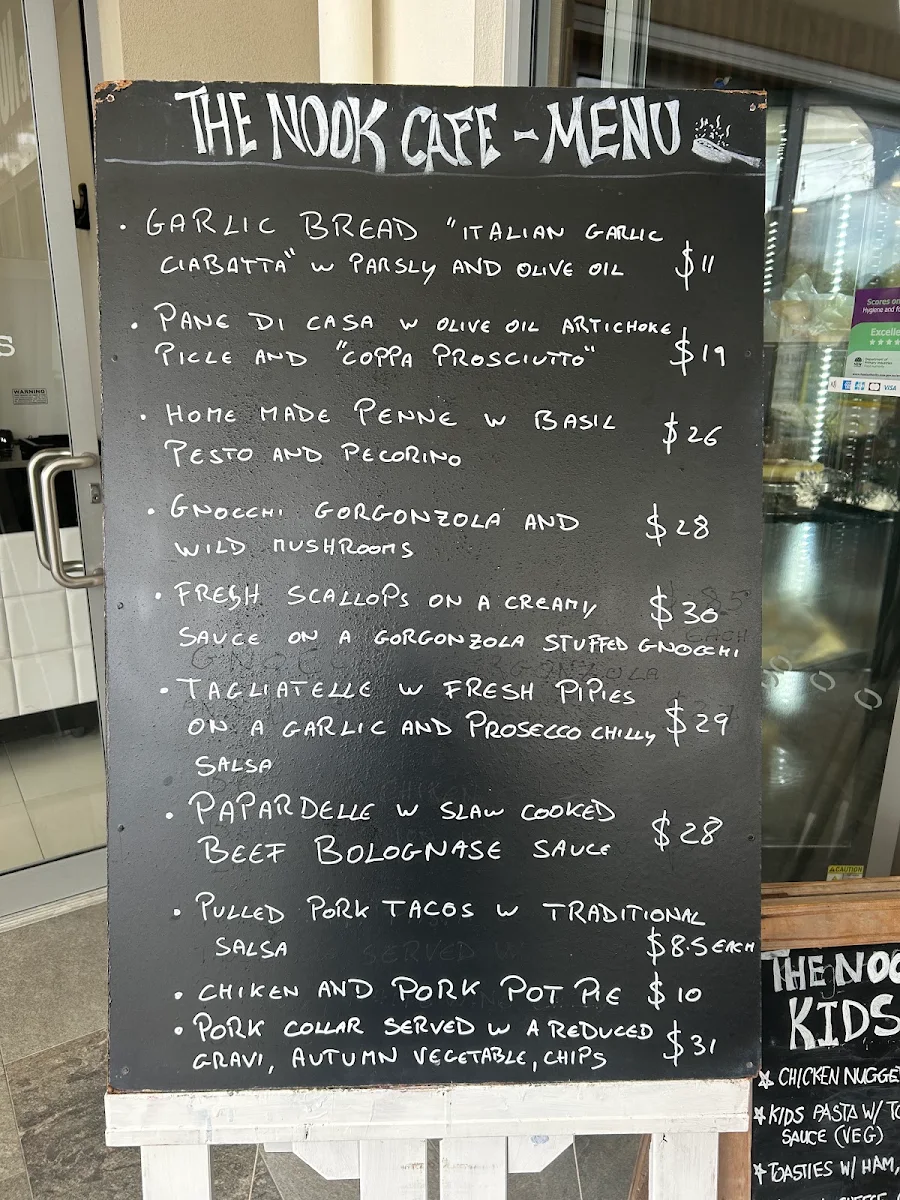 THE NOOK CAFE - MENU
• GARLIC BREAD "ITALIAN GARLIC
CIABATTA" W PARSLY AND OLIVE OIL $11
• PANE DI CASA W OLIVE OIL ARTICHOKE
PICLE AND "COPPA PROSCIUTTO" $19
• HOME MADE PENNE W BASIL
PESTO AND PECORINO $26
• GNOCCHI GORGONZOLA AND
WILD MUSHROOMS $28
• FRESH SCALLOPS ON A CREAMY $30
SAUCE ON A GORGONZOLA STUFFED GNOCCHI
• TAGLIATELLE W FRESH PIPIES
ON A GARLIC AND PROSECCO CHILLY $29
SALSA
• PAPARDELLE W SLAW COOKED
BEEF BOLOGNASE SAUCE $28
• PULLED PORK TACOS W TRADITIONAL
SALSA $8.5 EACH
• CHIKEN AND PORK POT PIE $10
• PORK COLLAR SERVED W A REDUCED
GRAVI, AUTUMN VEGETABLE, CHIPS $31
THE NOO
KIDS
CHICKEN NUGGE
KIDS PASTA W/ TO
SAUCE (VEG)
TOASTIES W/ HAM,
WARNING
Scores on
Hygiene and f
Excelle
VISA
CAUTION